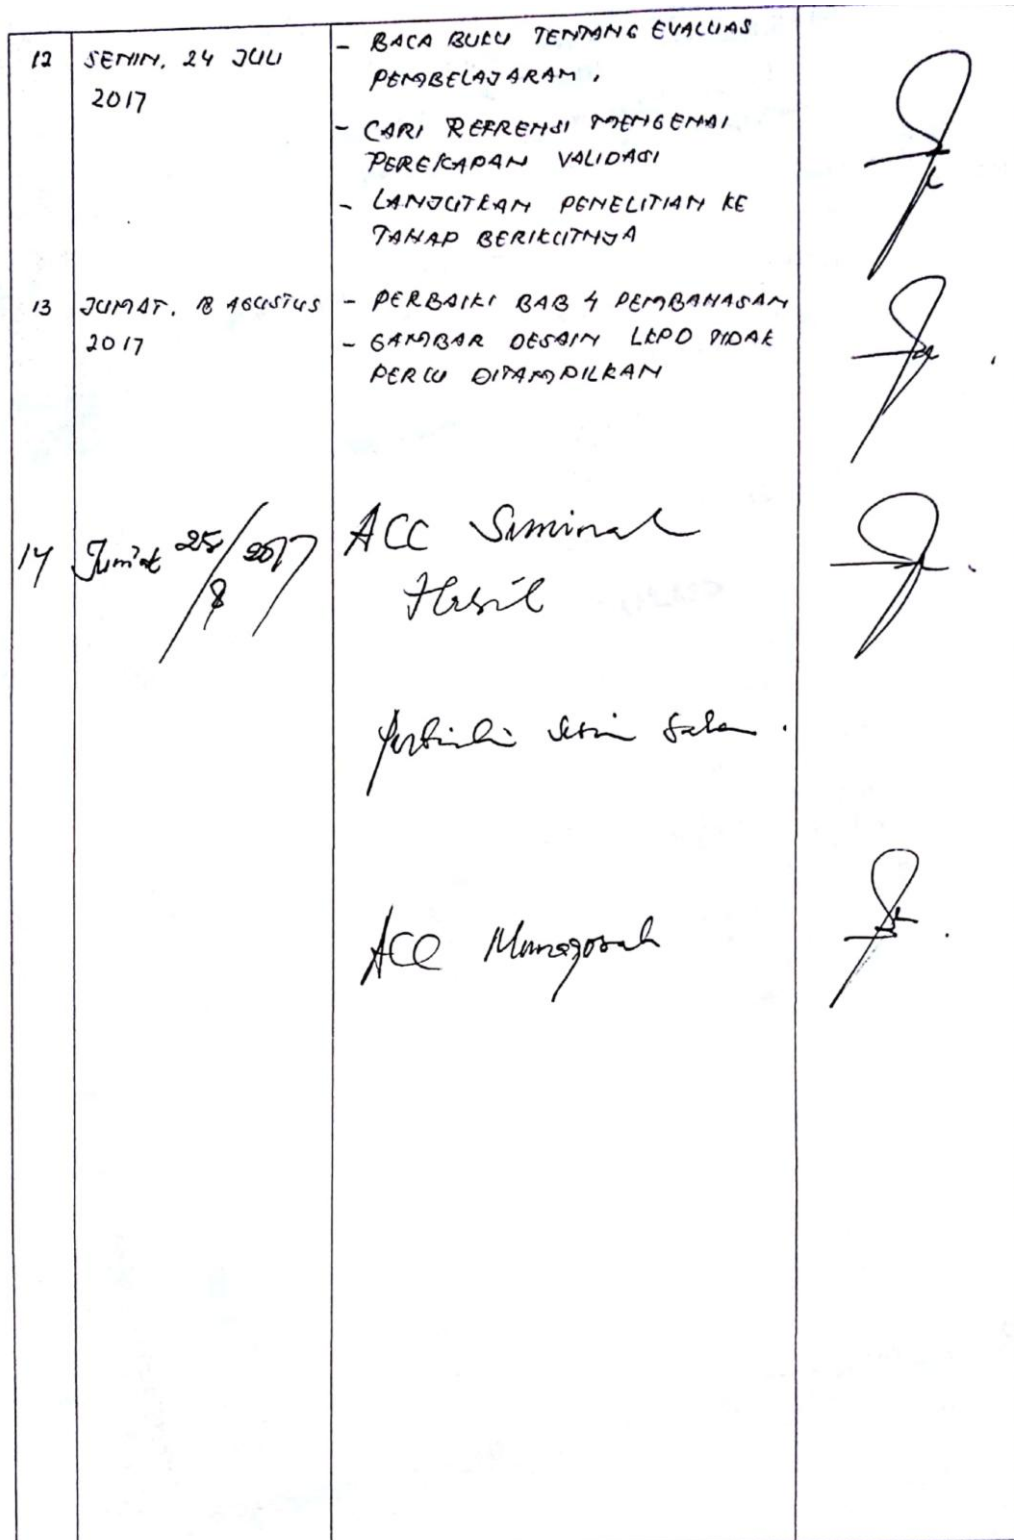 12 SENIN, 24 JULI - BACA BUKU TENTANG EVALUAS
2017 PEMBELAJARAN.
- CARI REFRENSI MENGENAI
PEREKAPAN VALIDASI
- LANJUTKAN PENELITIAN KE
TAHAP BERIKUTNYA
13 JUMAT, 18 AGUSTUS - PERBAIKI BAB 4 PEMBAHASAN
2017 - GAMBAR DESAIN LKPD TIDAK
PERLU DITAMPILKAN
14 Jum'at 25/8 2017 ACC Seminar
Hasil
Perbaiki sesuai saran.
ACC Munaqosah